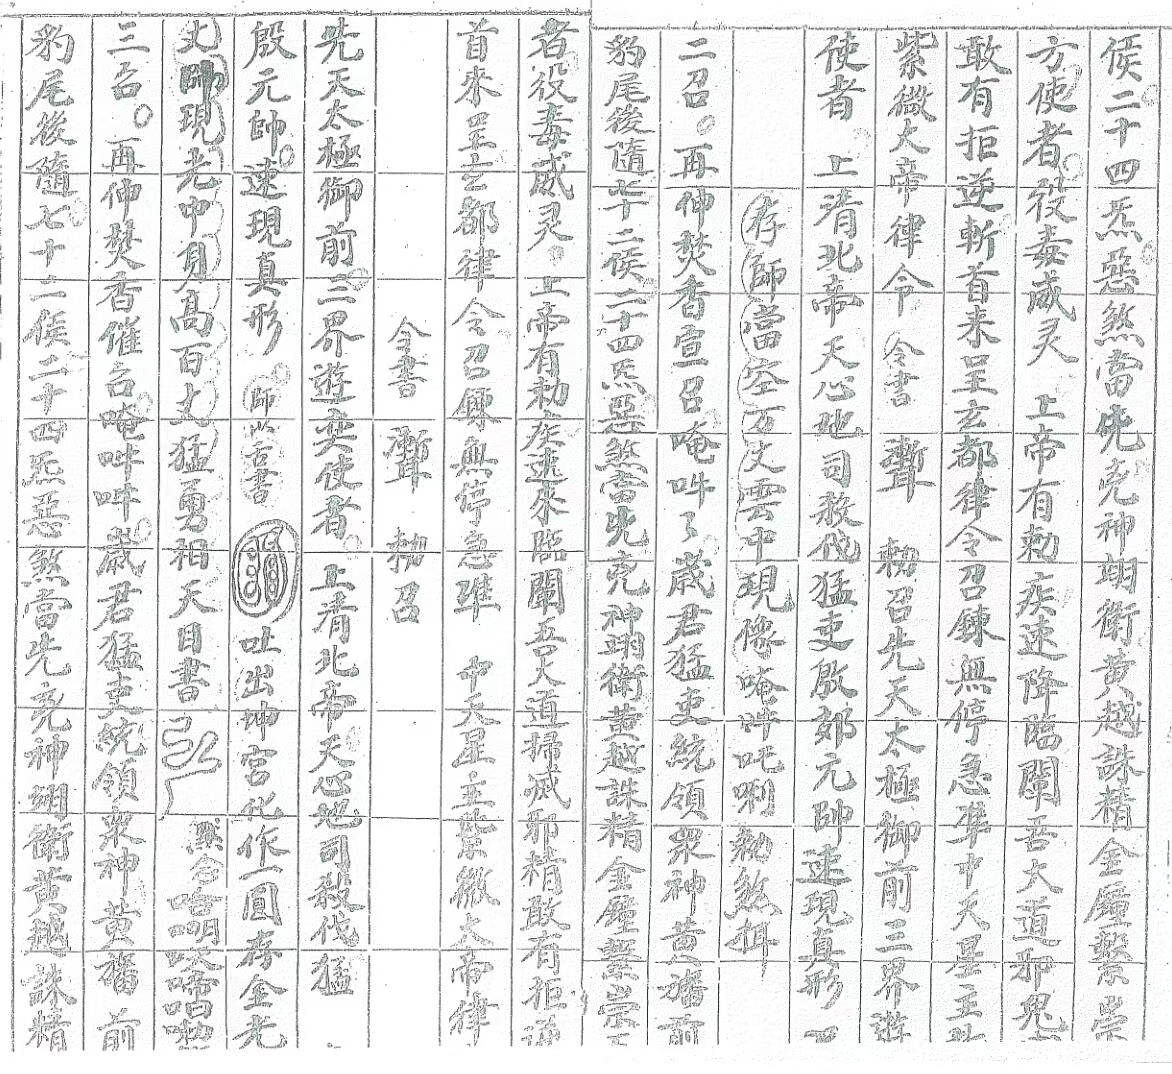 侯二十四炁惡煞當先兇神翊衛黃越誅精金鐘擊祟
方使者役毒威灵　上帝有勅疾速降臨闡吾大道邪鬼
敢有拒逆斬首来呈玄都律令召鍊無停急準中天星主
紫微大帝律令　令書　　勅召先天太極御前三界遊
使者　上清北帝天心地司殺伐猛吏殷郊元帥速現真形
存師當空万丈雲中現像唵吽吒唎勅煞摂
二召。再伸焚香宣召唵吽々歲君猛吏統領眾神黃旛前
豹尾後隨七十二侯二十四炁惡煞當先兇神翊衛黃越誅精金鐘擊祟
者役毒威灵。上帝有勅疾速來臨闡吾大道掃滅邪精敢有拒逆
首來呈玄都律令召鍊無停急準　中天星主紫微大帝律
令書　　勅召
先天太極御前三界遊奕使者。上清北帝天心地司殺伐猛
殷元帥。速現真形　師以古書　吐出坤宮化作一圓存金光
丈帥現光中身高百丈猛勇相天目書　默念
三召。再伸焚香催召唵吽吽歲君猛吏統領眾神黃旛前
豹尾後隨七十二侯二十四炁惡煞當先兇神翊衛黃越誅精